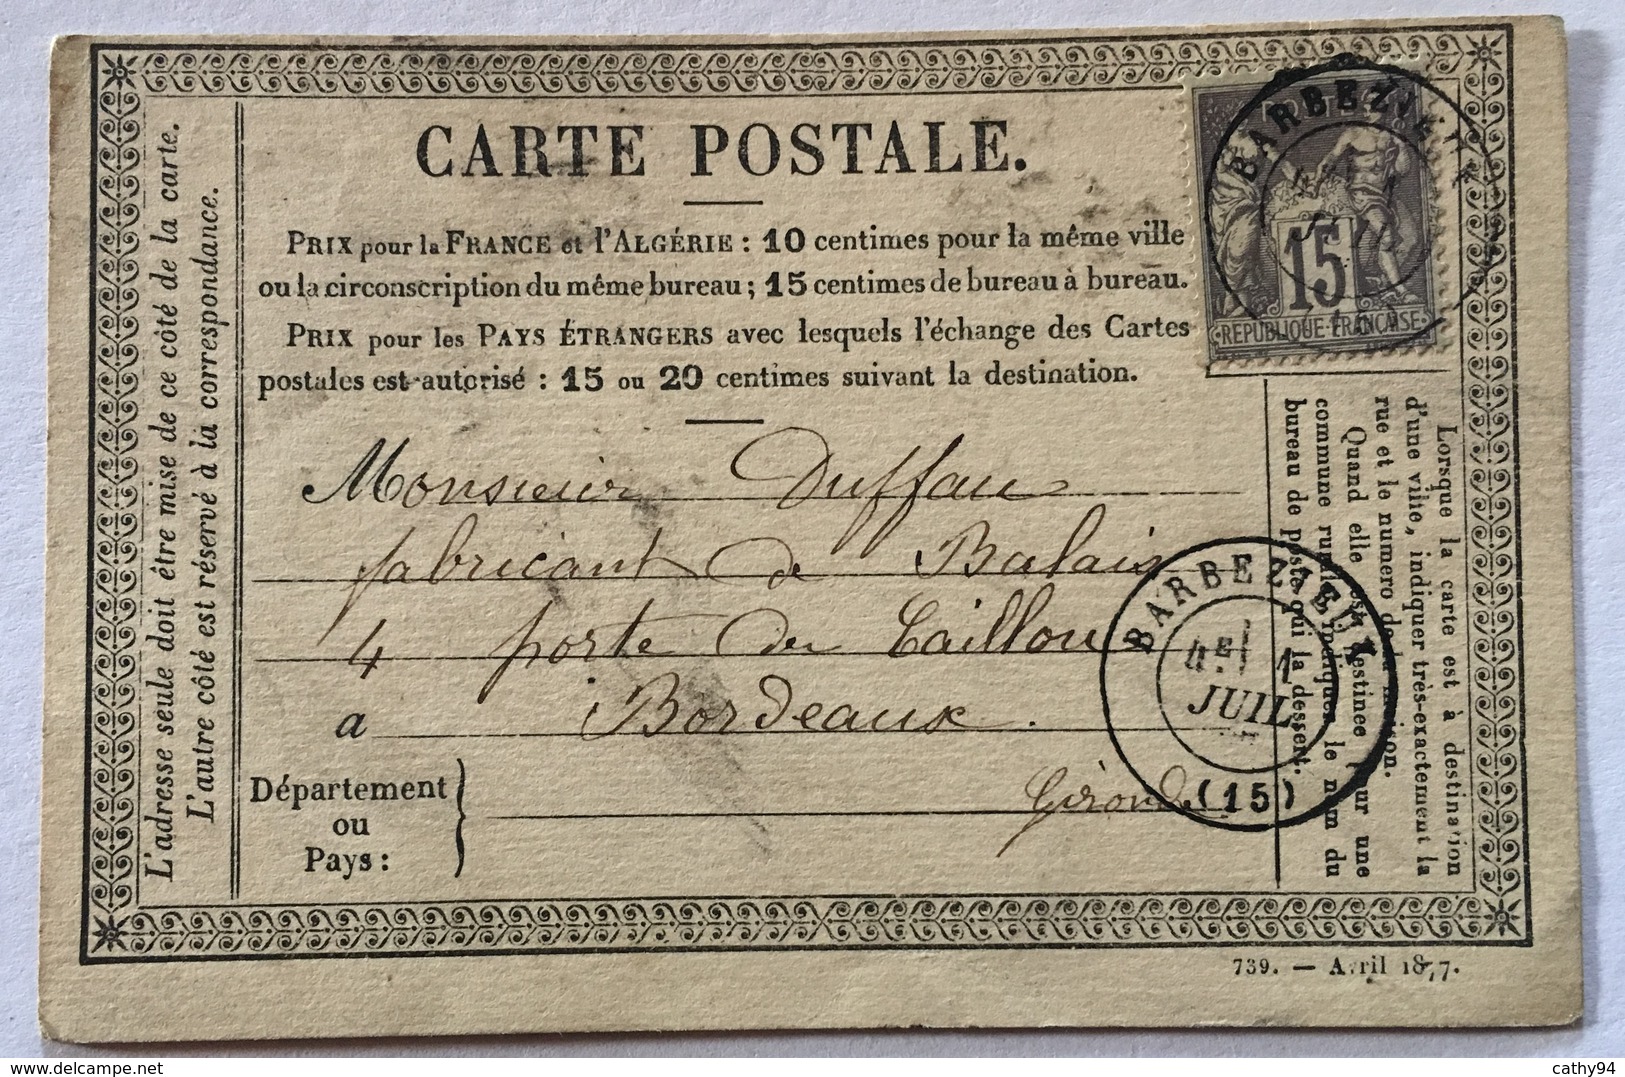 CARTE POSTALE.
PRIX pour la FRANCE et l'ALGÉRIE : 10 centimes pour la même ville
ou la circonscription du même bureau ; 15 centimes de bureau à bureau.
PRIX pour les PAYS ÉTRANGERS avec lesquels l'échange des Cartes
postales est autorisé : 15 ou 20 centimes suivant la destination.
L'adresse seule doit être mise de ce côté de la carte.
L'autre côté est réservé à la correspondance.
BARBEZIEUX
15
REPUBLIQUE FRANÇAISE
Lorsque la carte est à destination
d'une ville, indiquer très-exactement la
rue et le numéro de la maison.
Quand elle est destinée pour une
commune rurale, indiquer le nom du
bureau de poste qui la dessert.
Monsieur Duffau
fabricant de Balais
4 porte du Caillou
a Bordeaux.
Département
ou
Pays :
Gironde
BARBEZIEUX
4E 1
JUIL
(15)
739. — Avril 1877.
delcampe.net
cathy94